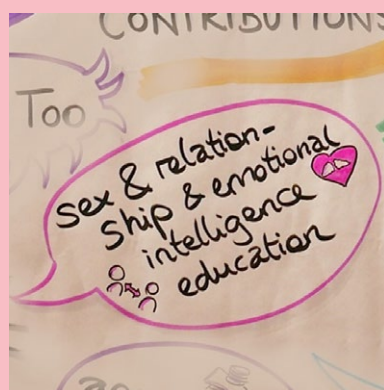 CONTRIBUTIONS
Too
sex & relation-
ship & emotional
intelligence
education